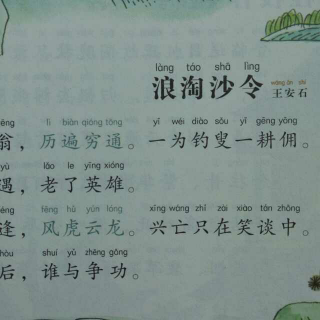 làng táo shā lìng
浪淘沙令 王安石
lì biàn qióng tōng yī wéi diào sǒu yī gēng yōng
翁，历遍穷通。一为钓叟一耕佣。
yù lǎo le yīng xióng
遇，老了英雄。
féng fēng hǔ yún lóng xīng wáng zhǐ zài xiào tán zhōng
逢，风虎云龙。兴亡只在笑谈中。
hòu shuí yǔ zhēng gōng
后，谁与争功。